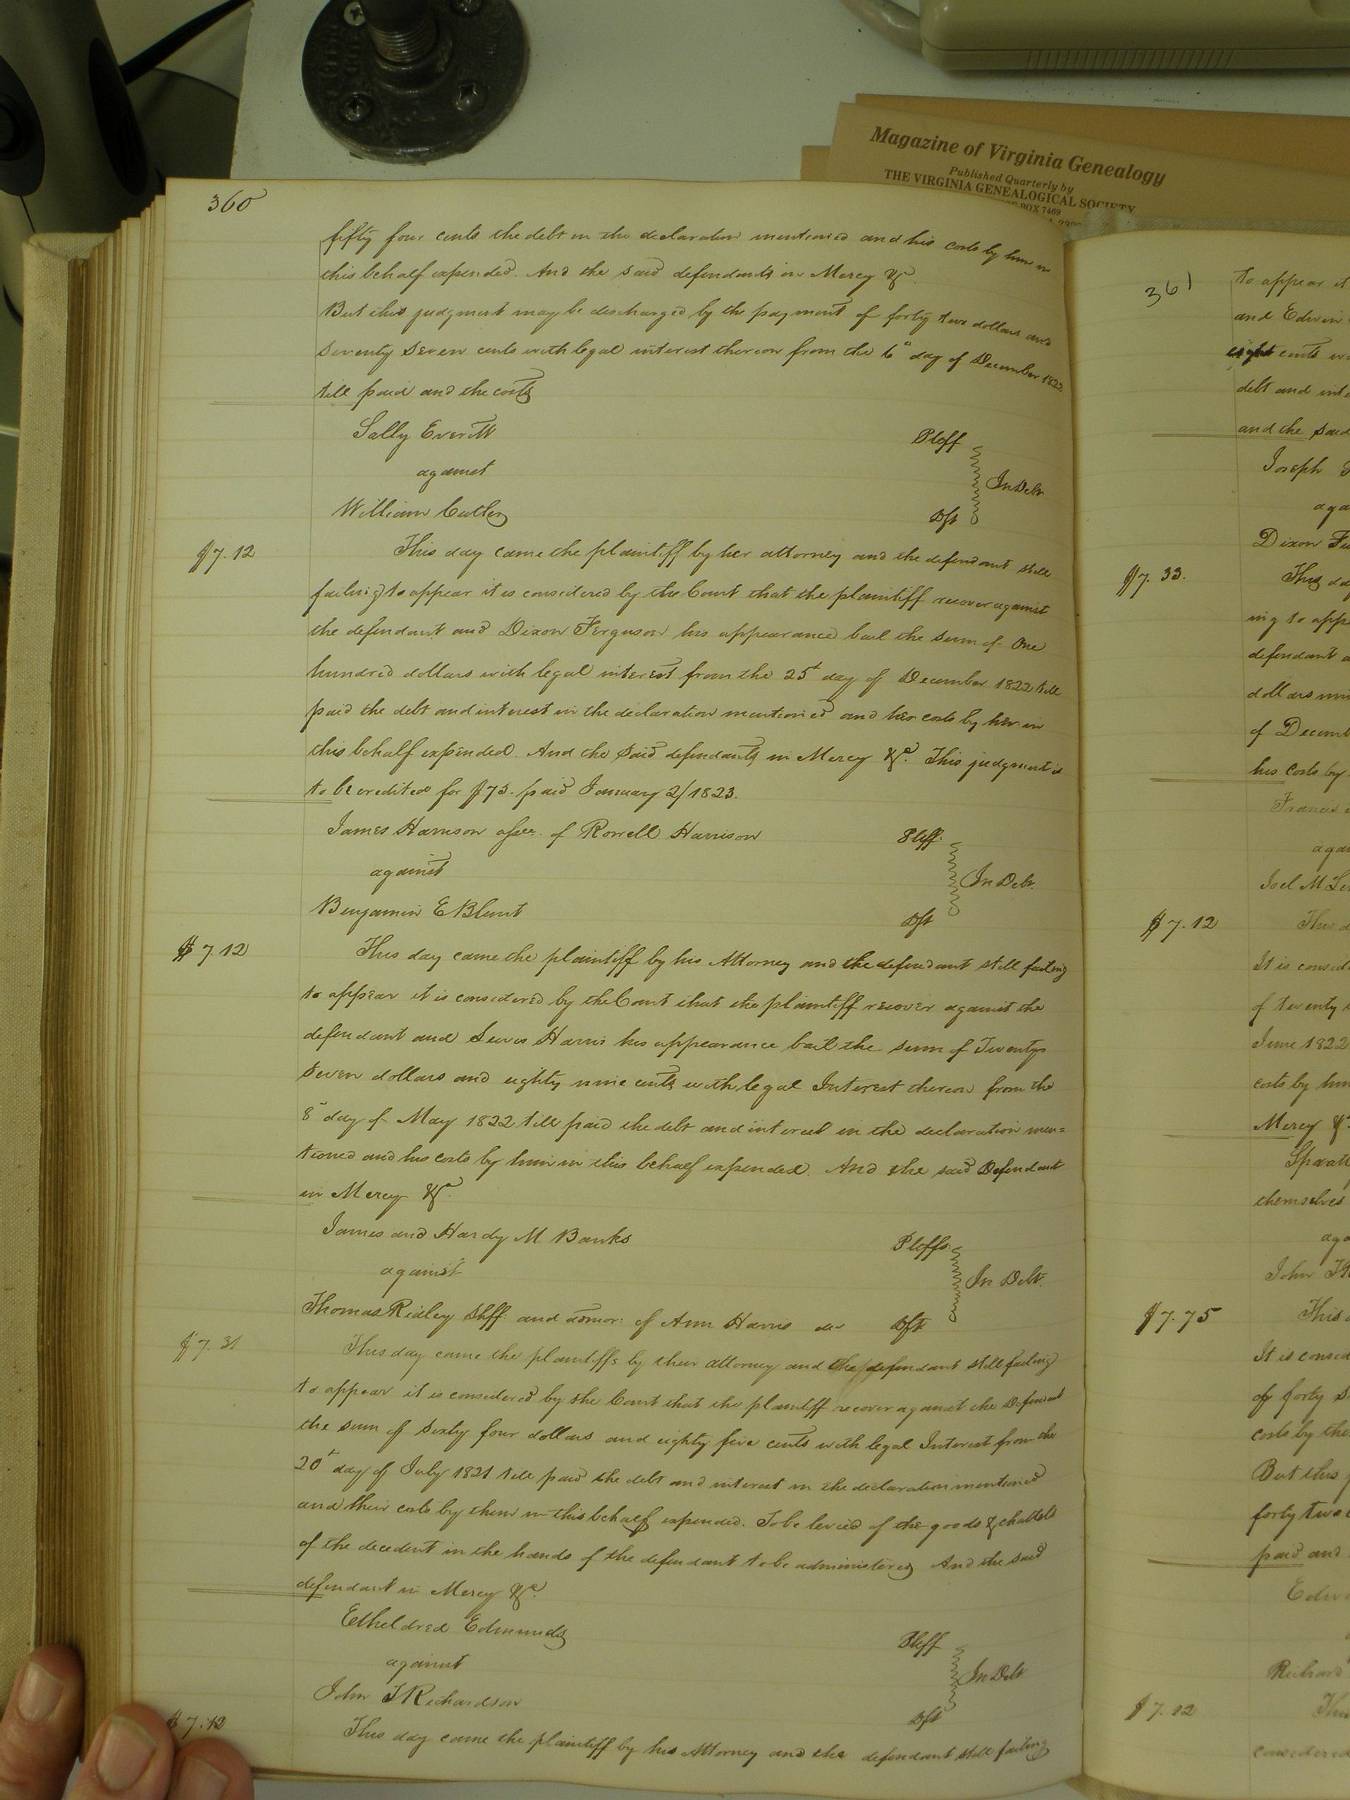 Magazine of Virginia Genealogy
Published Quarterly by
THE VIRGINIA GENEALOGICAL SOCIETY
BOX 7469
360
fifty four cents the debt in the declaration mentioned and his costs by him in
this behalf expended. And the said defendants in Mercy &c.
But this judgment may be discharged by the payment of forty two dollars and
seventy seven cents with legal interest thereon from the 6th day of December 1822
till paid and the costs
Sally Everitt Pltff
against In Debt
William Cutler Dft
$7.12 This day came the plaintiff by her attorney and the defendant still
failing to appear it is considered by the Court that the plaintiff recover against
the defendant and Dixon Ferguson his appearance bail the sum of One
hundred dollars with legal interest from the 25t day of December 1822 till
paid the debt and interest in the declaration mentioned and her costs by her in
this behalf expended. And the said defendants in Mercy &c. This judgment is
to be credited for $73. paid January 2/1823.
James Harrison assee. of Harrison Pltff.
against In Debt.
Benjamin E Blunt Dft
$7.12 This day came the plaintiff by his Attorney and the defendant still failing
to appear it is considered by the Court that the plaintiff recover against the
defendant and Lewis Harris his appearance bail the sum of Twenty
seven dollars and eighty nine cents with legal Interest thereon from the
8th day of May 1822 till paid the debt and interest in the declaration men=
tioned and his costs by him in this behalf expended. And the said Defendant
in Mercy &c.
James and Hardy M Banks Pltffs
against In Debt.
Thomas Ridley Shff. and admor. of Ann Harris dec Dft
$7.31 This day came the plaintiffs by their attorney and the defendant still failing
to appear it is considered by the Court that the plaintiff recover against the Defendant
the sum of Sixty four dollars and eighty five cents with legal Interest from the
20t day of July 1821 till paid the debt and interest in the declaration mentioned
and their costs by them in this behalf expended. To be levied of the goods & chattels
of the decedent in the hands of the defendant to be administered And the said
defendant in Mercy &c.
Etheldred Edmunds Pltff
against In Debt
John T Richardson Dft
$7.12 This day came the plaintiff by his Attorney and the defendant still failing
361
to appear it
and Edwin
eight cents
debt and inte
and the said
Joseph
aga
Dixon
$7.33. This da
ing to appe
defendant
dollars
of Decemb
his costs by
Francis
aga
Joel M
$7.12 This
It is consid
of twenty
June 1822
costs by him
Mercy &c
themselves
aga
John
$7.75 This
It is consid
of forty
costs by the
But this
forty two
paid and
Edw
Richard
$7.12 This
considered